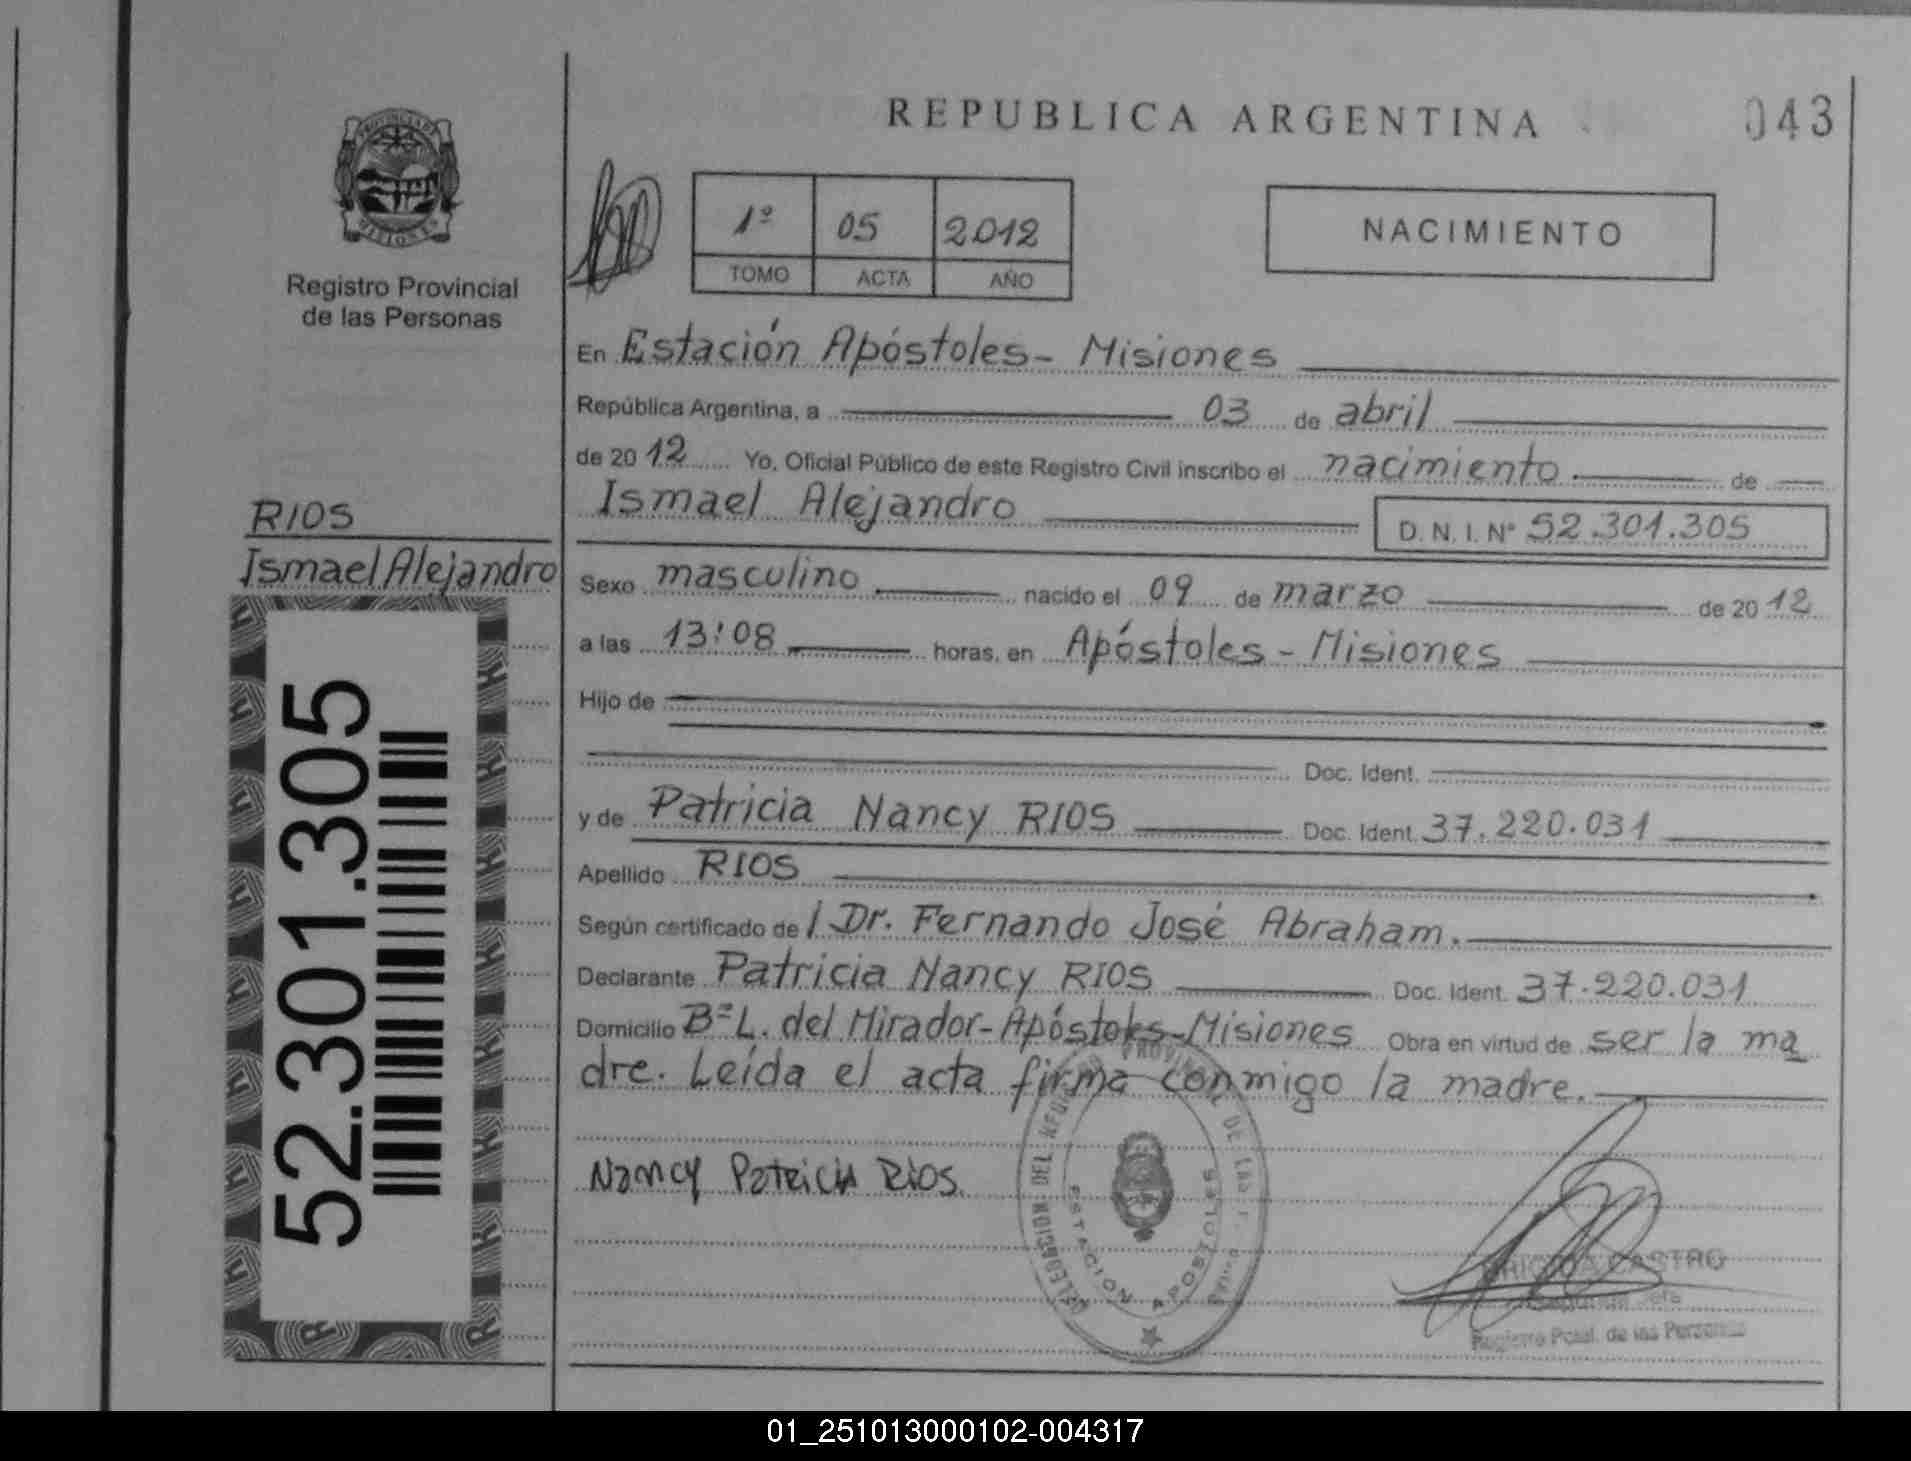 REPUBLICA ARGENTINA
043
PROVINCIA DE
MISIONES
Registro Provincial
de las Personas
1º 05 2012
TOMO ACTA AÑO
NACIMIENTO
En Estación Apóstoles - Misiones
República Argentina, a 03 de abril
de 2012 Yo, Oficial Público de este Registro Civil inscribo el nacimiento de
Ismael Alejandro D. N. I. Nº 52.301.305
RIOS
Ismael Alejandro
52.301.305
Sexo masculino nacido el 09 de marzo de 2012
a las 13:08 horas, en Apóstoles - Misiones
Hijo de
Doc. Ident.
y de Patricia Nancy RIOS Doc. Ident. 37.220.031
Apellido RIOS
Según certificado de / Dr. Fernando José Abraham.
Declarante Patricia Nancy RIOS Doc. Ident. 37.220.031
Domicilio Bº L. del Mirador - Apóstoles - Misiones Obra en virtud de ser la ma
dre. Leída el acta firma conmigo la madre.
Nancy Patricia Rios
DELEGACION DEL REGISTRO PROVINCIAL DE LAS
ESTACION APOSTOLES
CASTRO
Registro Pcial. de las Personas
01_251013000102-004317